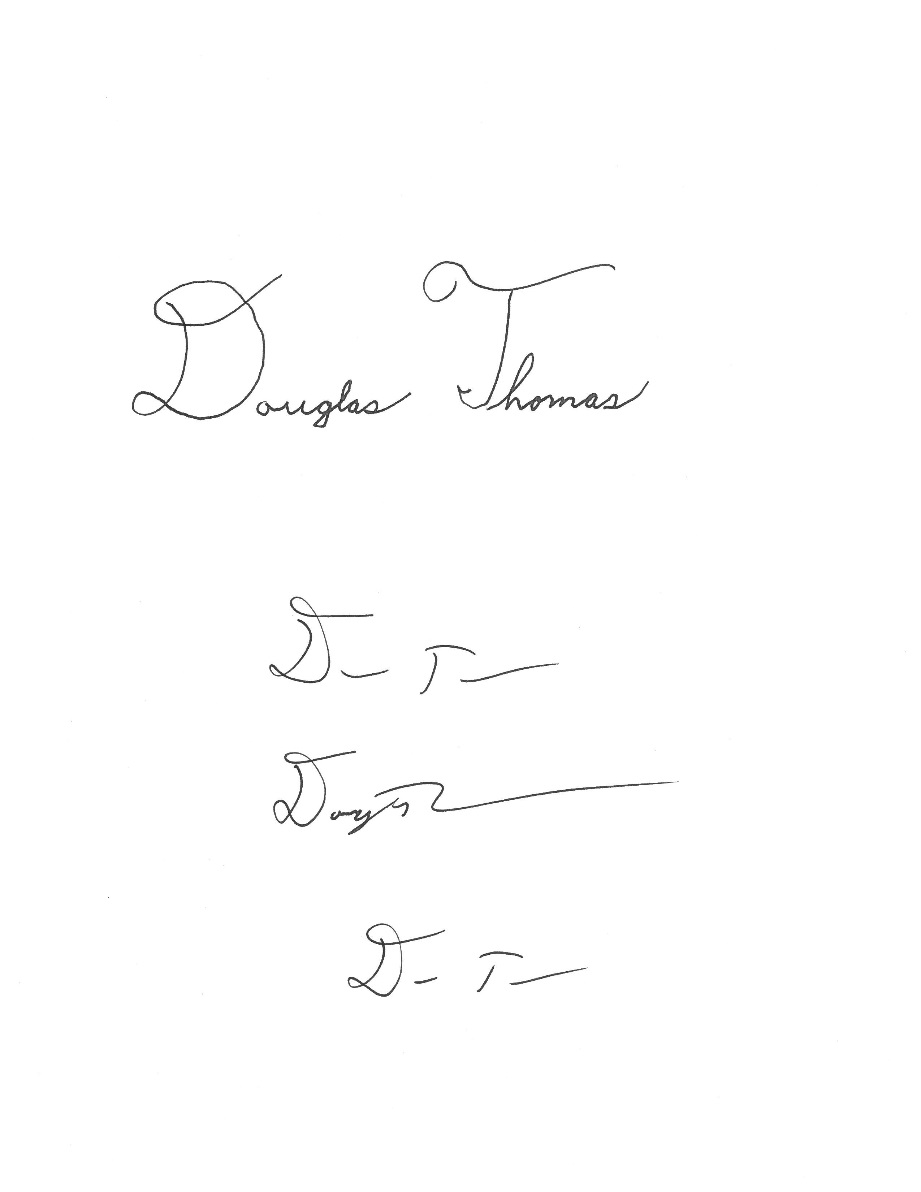 Douglas Thomas
D T
Doug T
D T